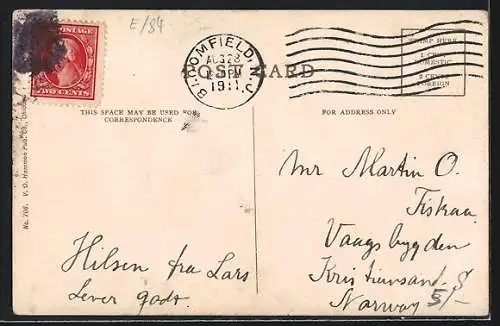 E/84
POSTAGE
TWO CENTS
BLOOMFIELD, N.J.
AUG 28
PM
1911
POST CARD
STAMP HERE
1 CENT
DOMESTIC
2 CENTS
FOREIGN
THIS SPACE MAY BE USED FOR
CORRESPONDENCE
FOR ADDRESS ONLY
No. 708. V. O. Hammon Pub. Co.
Mr Martin O.
Fiskaa
Vaagsbygden
Kristiansand. S
Norway
5/-
Hilsen fra Lars
Lever godt.